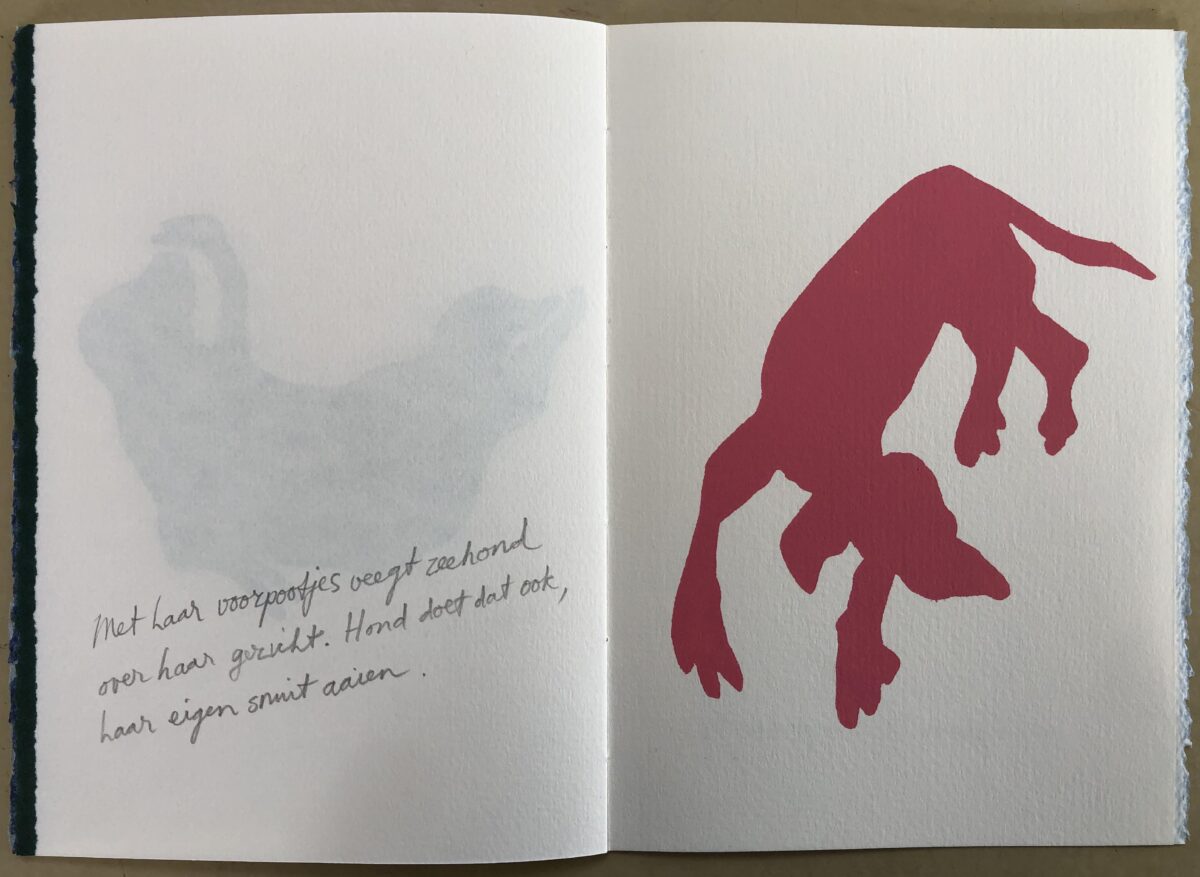 Met haar voorpootjes veegt zeehond
over haar gezicht. Hond doet dat ook,
haar eigen snuit aaien.